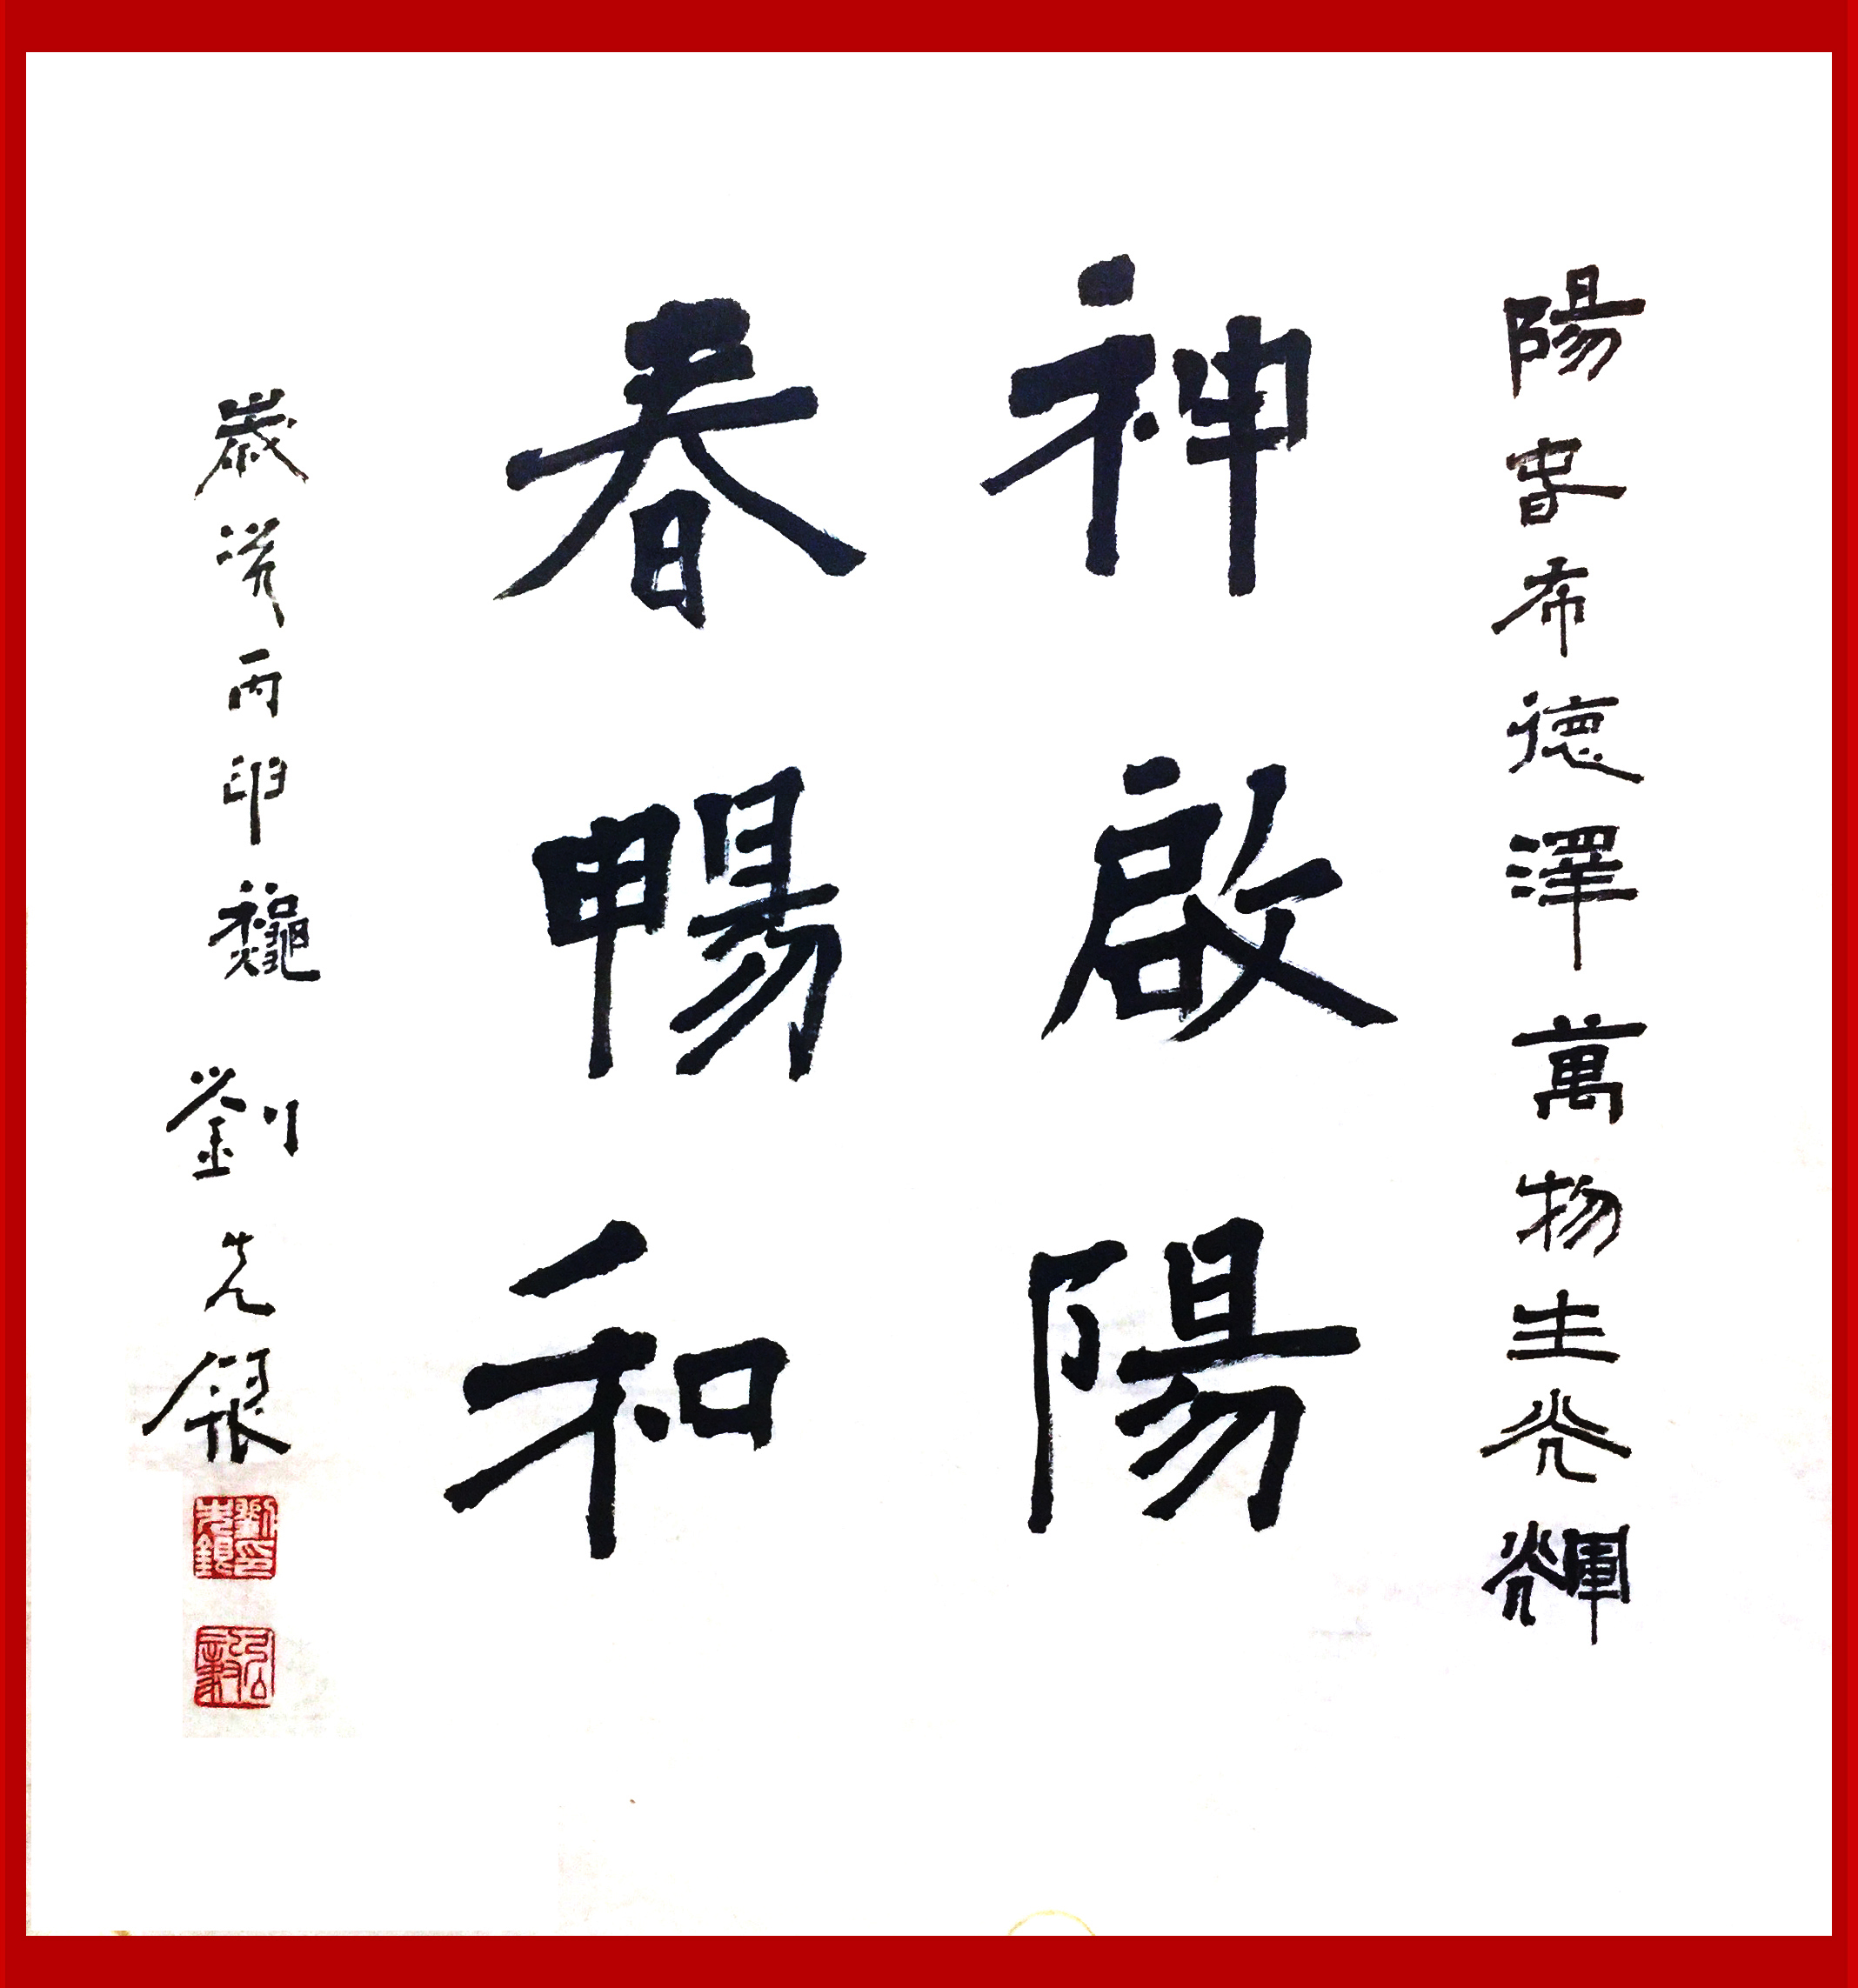 陽春布德澤萬物生光輝
神啟陽
春暢和
歲次丙申龝 劉先銀
劉印先銀
弘毅